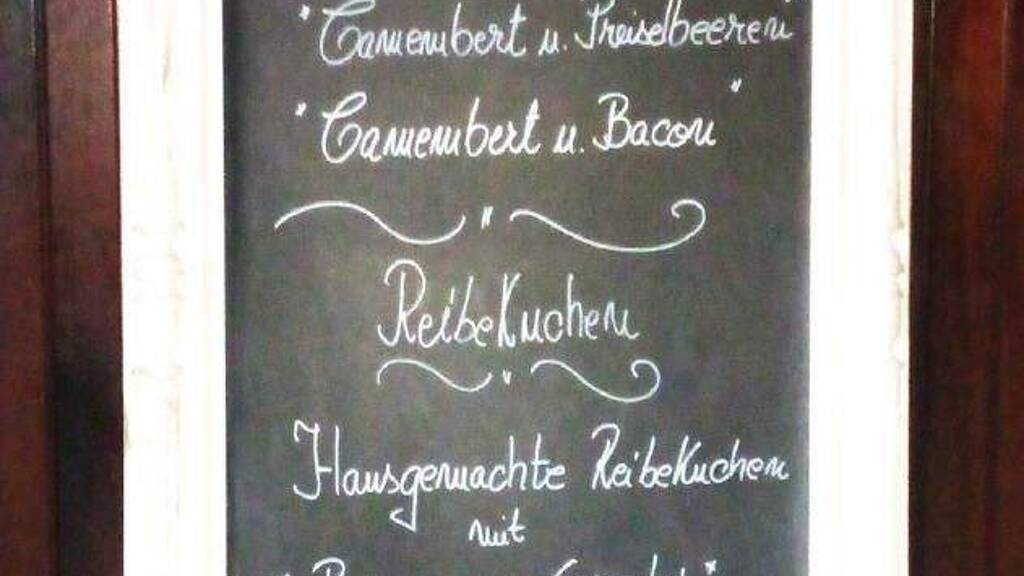 "Camembert u. Preiselbeeren"
"Camembert u. Bacon"
ReibeKuchen
Hausgemachte ReibeKuchen
mit